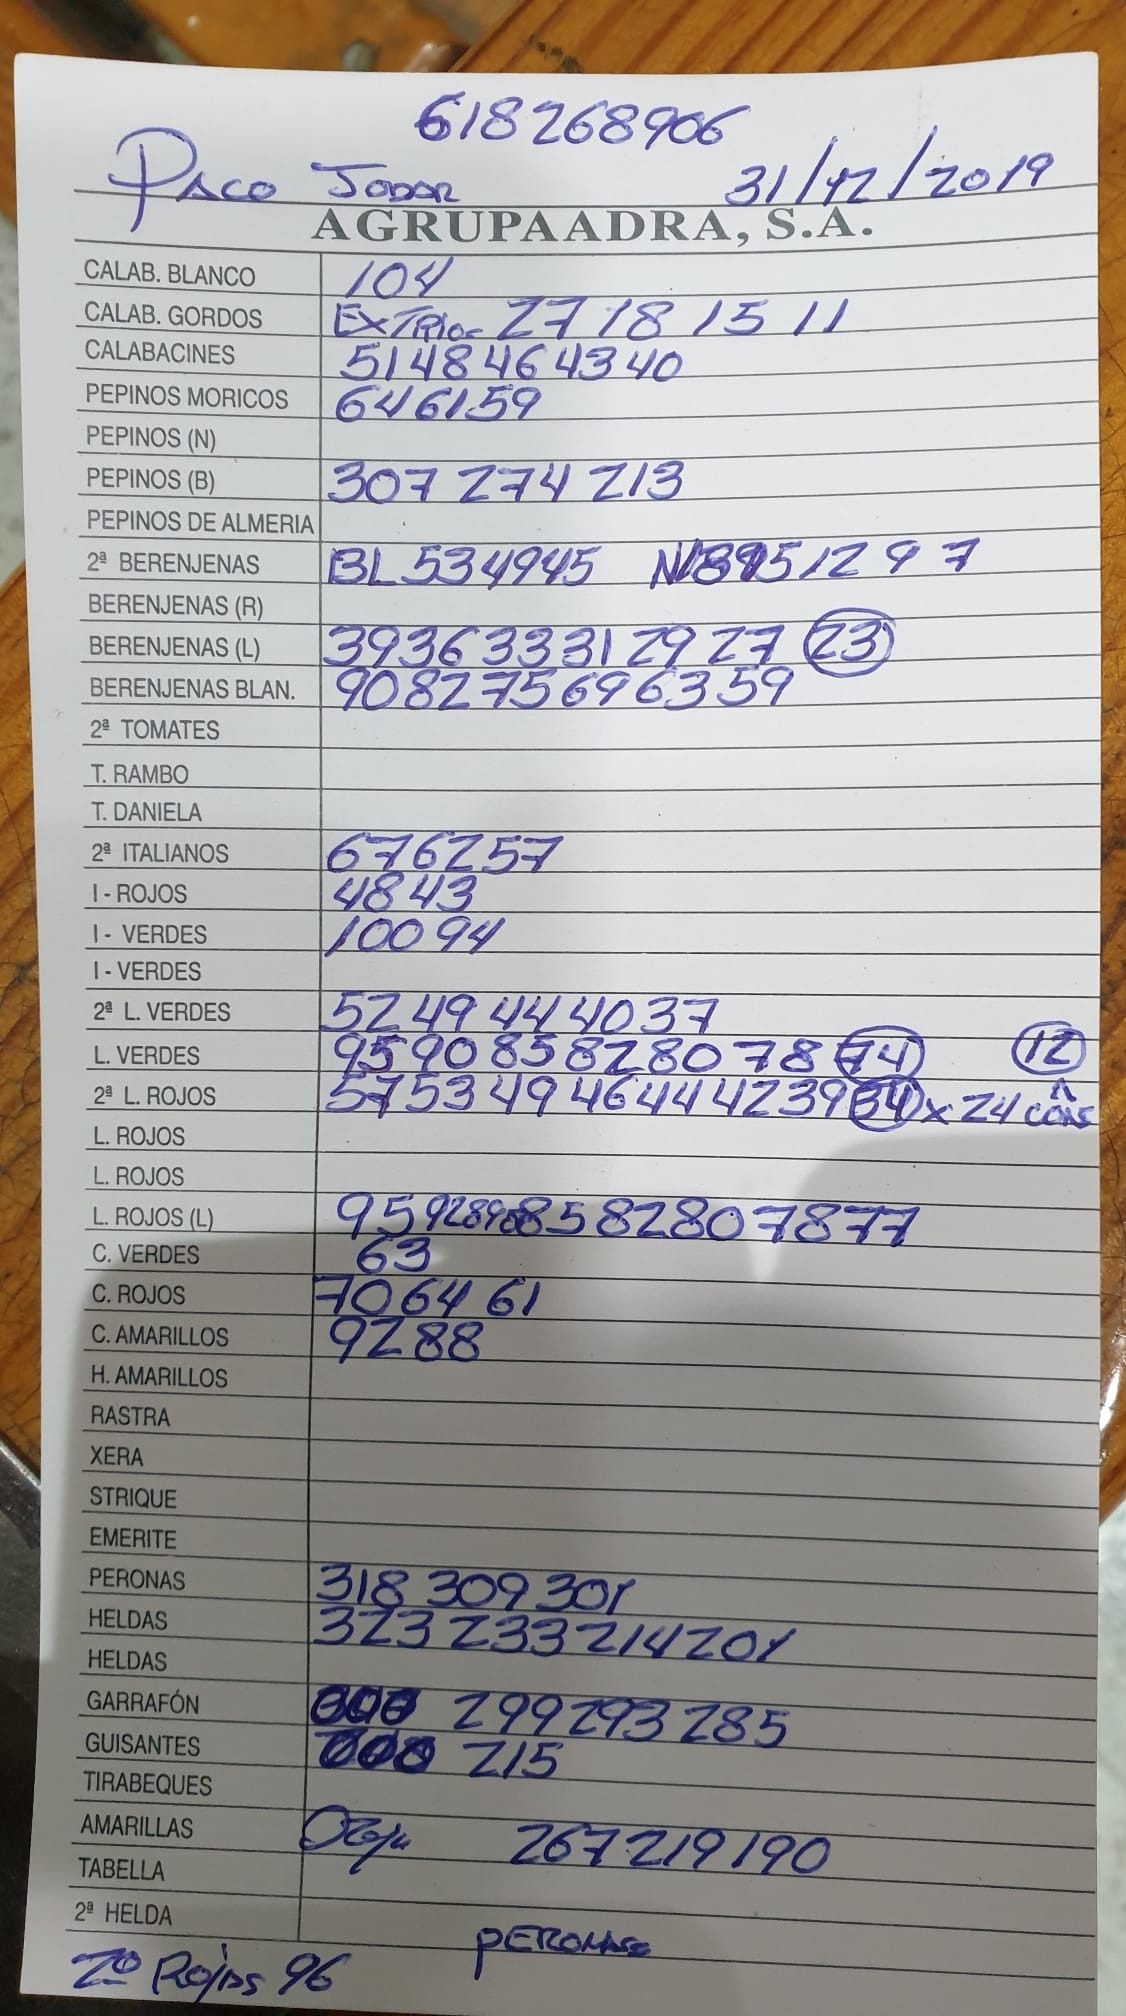 618268906
PACO JODAR 31/12/2019
AGRUPAADRA, S.A.
CALAB. BLANCO 104
CALAB. GORDOS 27 18 15 11
CALABACINES 51 48 46 43 40
PEPINOS MORICOS 64 61 59
PEPINOS (N)
PEPINOS (B) 307 274 213
PEPINOS DE ALMERIA
2ª BERENJENAS BL 53 49 45 12 9 7
BERENJENAS (R)
BERENJENAS (L) 39 36 33 31 29 27 23
BERENJENAS BLAN. 90 82 75 69 63 59
2ª TOMATES
T. RAMBO
T. DANIELA
2ª ITALIANOS 67 62 57
I - ROJOS 48 43
I - VERDES 100 94
I - VERDES
2ª L. VERDES 52 49 44 40 37
L. VERDES 95 90 85 82 80 78 74 12
2ª L. ROJOS 57 53 49 46 44 42 39 34 x 24
L. ROJOS
L. ROJOS
L. ROJOS (L) 95 92 89 85 82 80 78 77
C. VERDES 63
C. ROJOS 70 64 61
C. AMARILLOS 92 88
H. AMARILLOS
RASTRA
XERA
STRIQUE
EMERITE
PERONAS 318 309 301
HELDAS 323 233 214 201
HELDAS
GARRAFÓN 299 293 285
GUISANTES 215
TIRABEQUES
AMARILLAS 267 219 190
TABELLA
2ª HELDA
2º Rojas 96